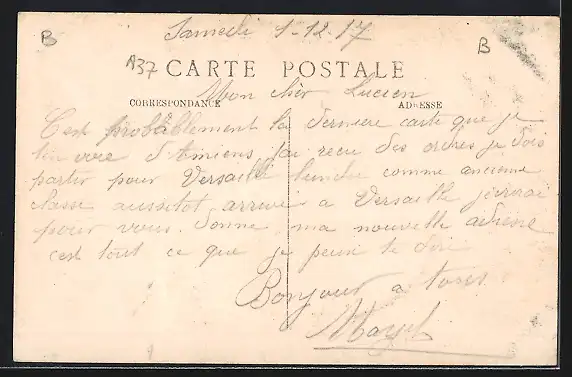 Samedi 1-12-17
B
B
A37
CARTE POSTALE
Mon cher Lucien
CORRESPONDANCE
ADRESSE
C'est probablement la derniere carte que je
t'envoie d'Amiens j'ai recu des ordres je dois
partir pour Versaille lundi comme ancienne
classe aussitot arrivé a Versaille j'écrirai
pour vous donner ma nouvelle adresse
c'est tout ce que je peux te dire
Bonjour a tous